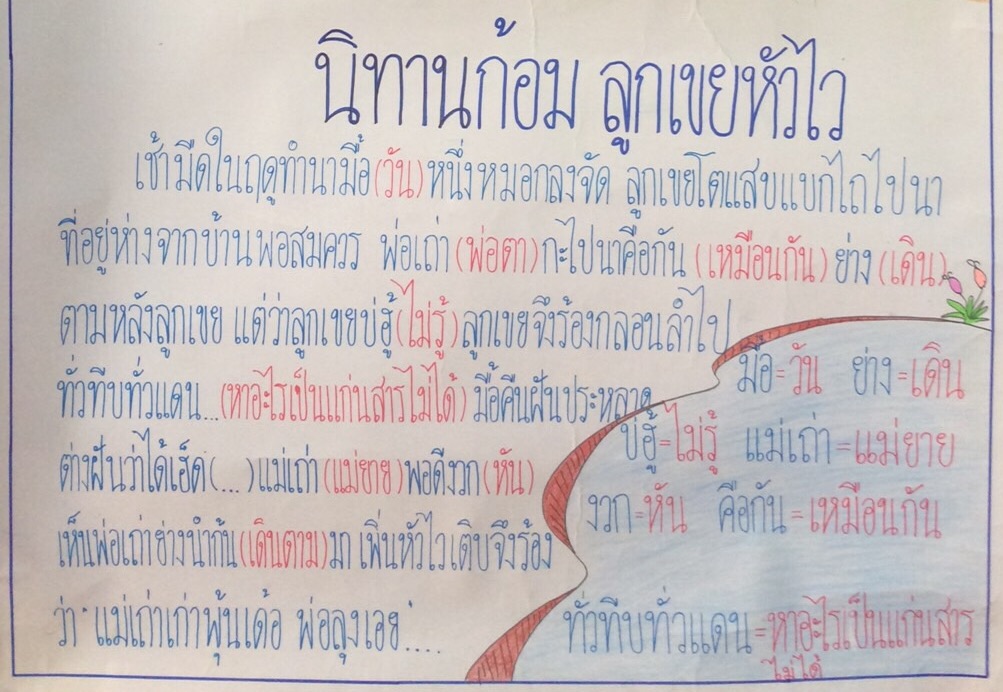 นิทานก้อม ลูกเขยหัวไว
เช้ามืดในฤดูทำนามื้อ(วัน)หนึ่งหมอกลงจัด ลูกเขยโตแสบแบกไถไปนา
ที่อยู่ห่างจากบ้านพอสมควร พ่อเถ่า(พ่อตา)กะไปนาคือกัน(เหมือนกัน)ย่าง(เดิน)
ตามหลังลูกเขย แต่ว่าลูกเขยบ่ฮู้(ไม่รู้)ลูกเขยจึงร้องกลอนลำไป
ทั่วทีบทั่วแดน...(หาอะไรเป็นแก่นสารไม่ได้)มื้อคืนฝันประหลาด
ต่างฝันว่าได้เฮ็ด(...)แม่เถ่า(แม่ยาย)พอดีงวก(หัน)
เห็นพ่อเถ่าย่างนำก้น(เดินตาม)มา เพิ่นหัวไวเติบจึงร้อง
ว่า"แม่เถ่าเก่าพุ้นเด้อ พ่อลุงเอย"....
มื้อ=วัน ย่าง=เดิน
บ่ฮู้=ไม่รู้ แม่เถ่า=แม่ยาย
งวก=หัน คือกัน=เหมือนกัน
ทั่วทีบทั่วแดน=หาอะไรเป็นแก่นสาร
ไม่ได้